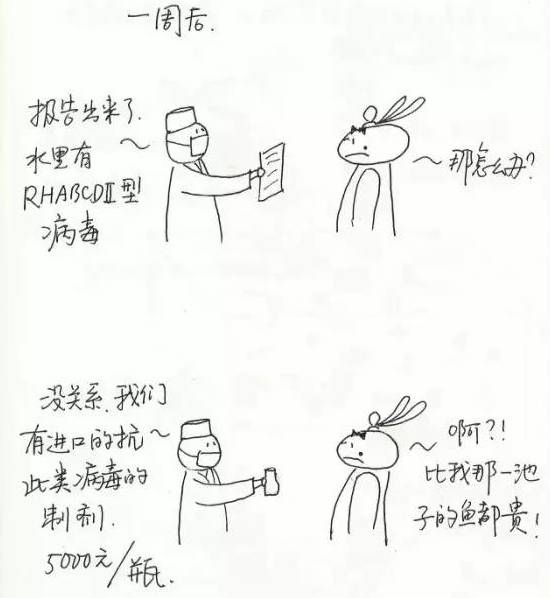 一周后.
报告出来了.
水里有
RHABCDII型
病毒
那怎么办?
没关系,我们
有进口的抗
此类病毒的
制剂.
5000元/瓶.
啊?!
比我那一池
子的鱼都貴!